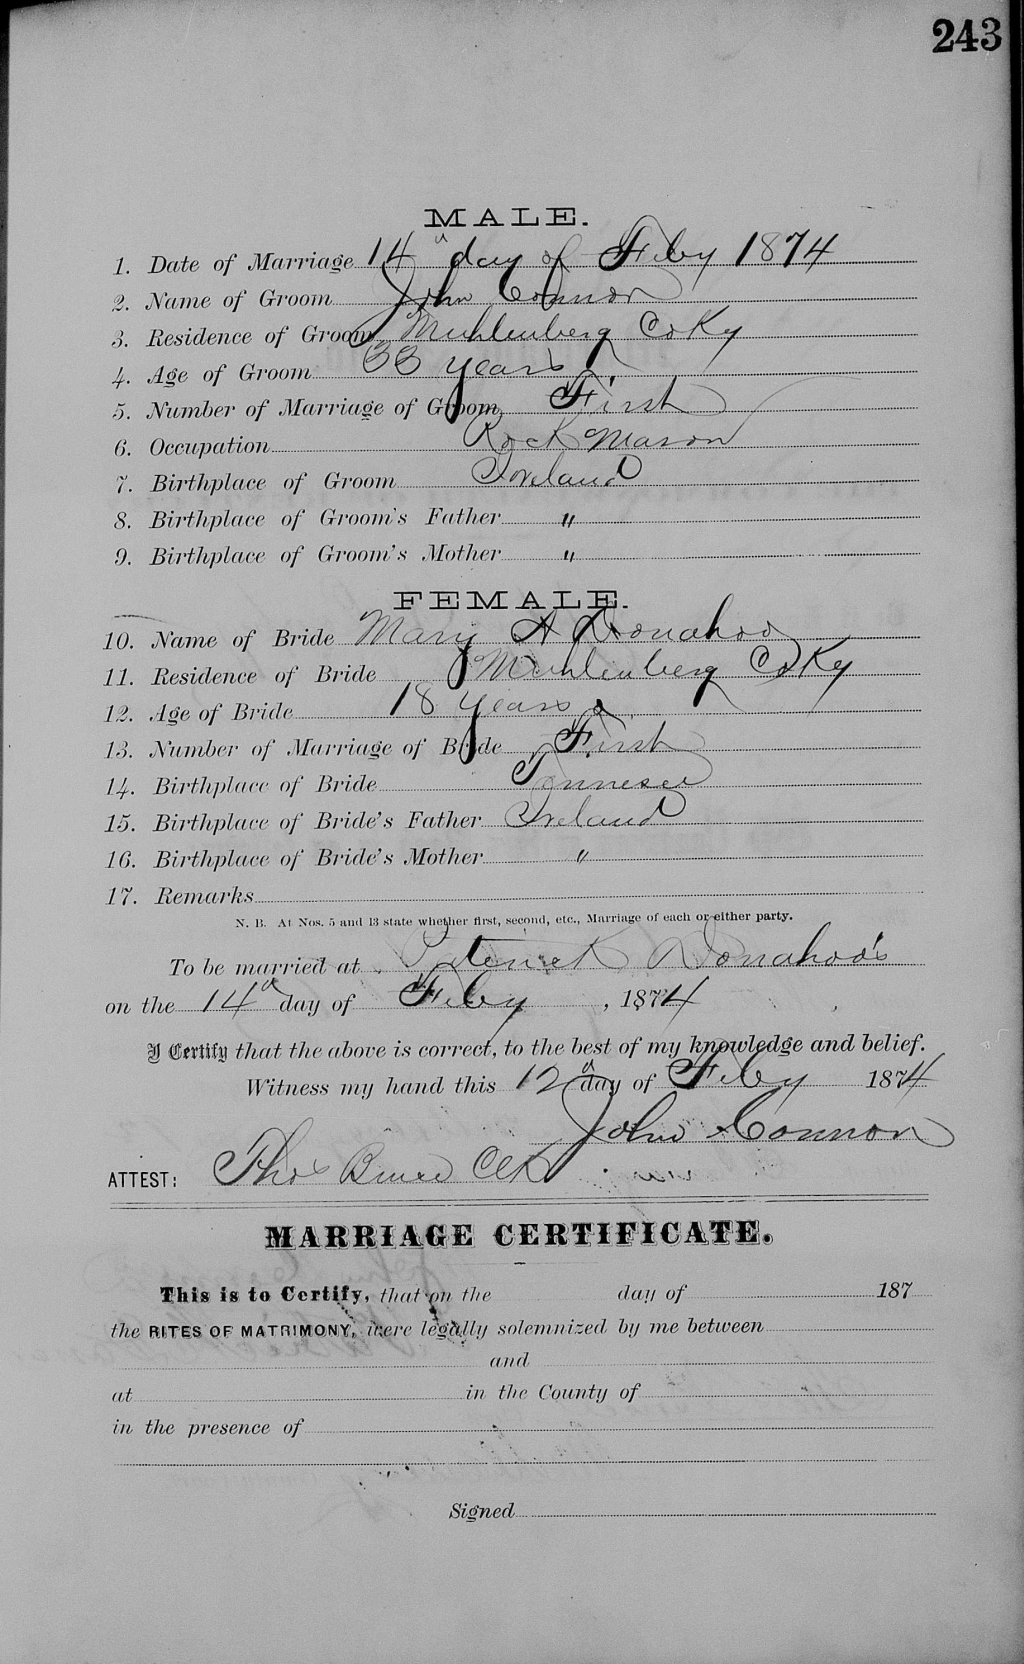 243
MALE.
1. Date of Marriage 14" day of Feby 1874
2. Name of Groom John Connor
3. Residence of Groom Muhlenberg Co Ky
4. Age of Groom 33 years
5. Number of Marriage of Groom First
6. Occupation Rock Mason
7. Birthplace of Groom Ireland
8. Birthplace of Groom's Father "
9. Birthplace of Groom's Mother "
FEMALE.
10. Name of Bride Mary A Donahoo
11. Residence of Bride Muhlenberg Co Ky
12. Age of Bride 18 years
13. Number of Marriage of Bride First
14. Birthplace of Bride Tennessee
15. Birthplace of Bride's Father Ireland
16. Birthplace of Bride's Mother "
17. Remarks
N. B. At Nos. 5 and 13 state whether first, second, etc., Marriage of each or either party.
To be married at Donahoo's
on the 14" day of Feby, 1874
I Certify that the above is correct, to the best of my knowledge and belief.
Witness my hand this 12" day of Feby 1874
John Connor
ATTEST: Thos Bruce Clk
MARRIAGE CERTIFICATE.
This is to Certify, that on the day of 187
the RITES OF MATRIMONY, were legally solemnized by me between
and
at in the County of
in the presence of
Signed